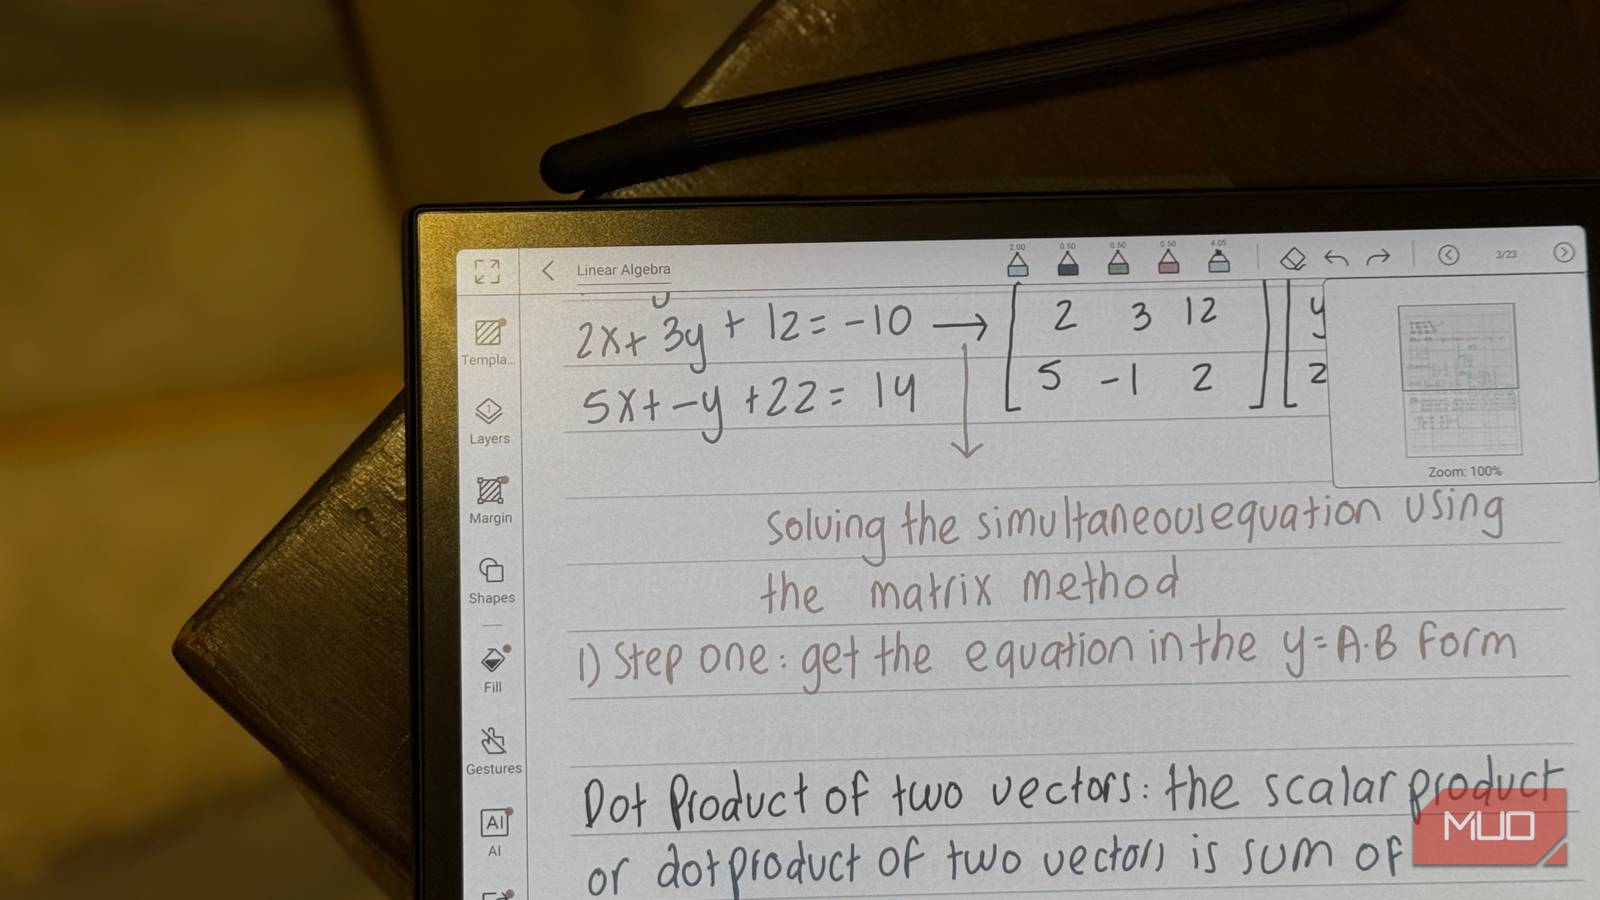 Linear Algebra
2.00 0.50 0.50 0.50 4.05
3/23
2x+ 3y + 12 = -10 → [ 2 3 12 ] [ y
5x+ -y +22 = 14 [ 5 -1 2 ] [ 2
Templa...
Layers
Margin
Shapes
Fill
Gestures
AI
AI
Zoom: 100%
solving the simultaneous equation using
the matrix method
1) Step one: get the equation in the y = A·B Form
Dot Product of two vectors: the scalar product
or dot product of two vectors is sum of
MUO